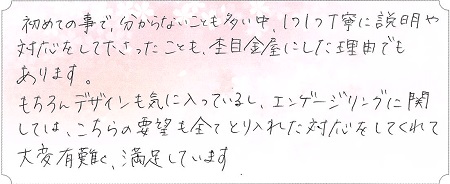 初めての事で、分からないことも多い中、1つ1つ丁寧に説明や
対応をして下さったことも、杢目金屋にした理由でも
あります。
もちろんデザインも気に入っているし、エンゲージリングに関
しては、こちらの要望も全てとり入れた対応をしてくれて
大変有難く、満足しています